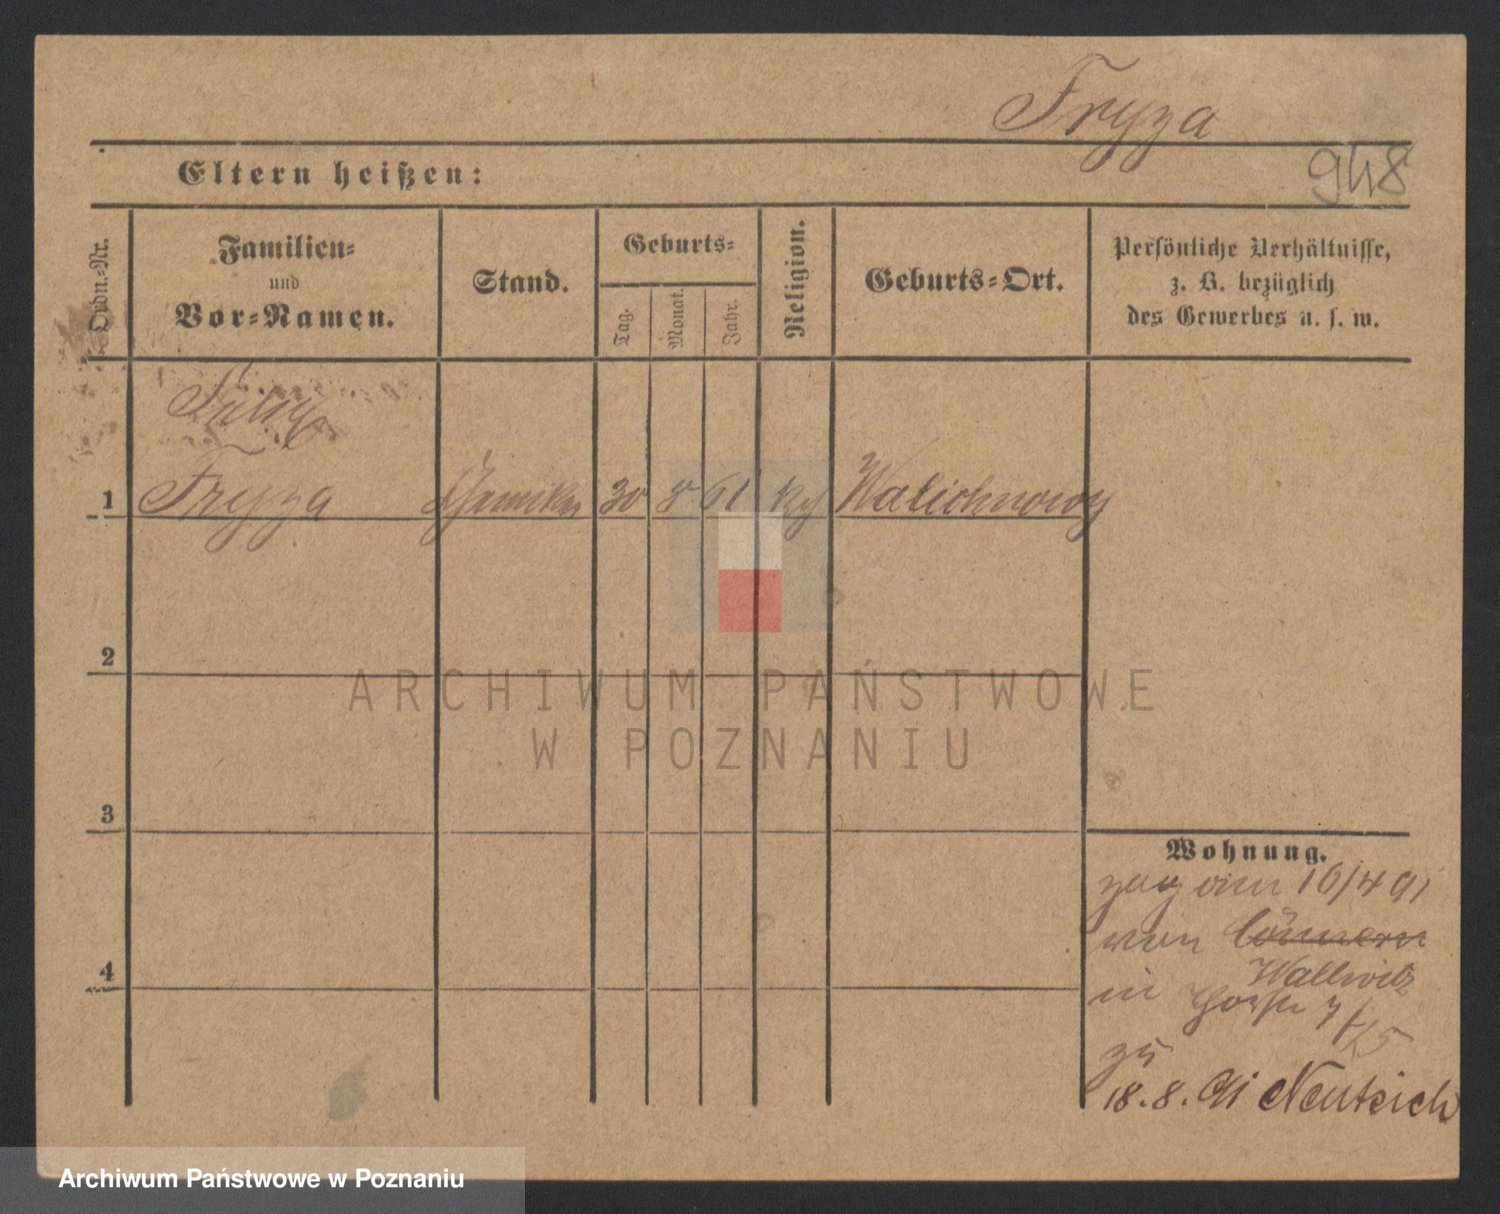 Fryza
948
Eltern heißen:
Ordn.-Nr.
Familien-
und
Vor-Namen.
Stand.
Geburts-
Tag.
Monat.
Jahr.
Religion.
Geburts-Ort.
Persönliche Verhältnisse,
z. B. bezüglich
des Gewerbes u. s. w.
1 Fryza 30 8 61 Walichnowy
2
3
4
Wohnung.
zog am 16/4 91
von
Wallwitz
in
zu
18. 8. 91 Neutsich
ARCHIWUM PAŃSTWOWE
W POZNANIU
Archiwum Państwowe w Poznaniu